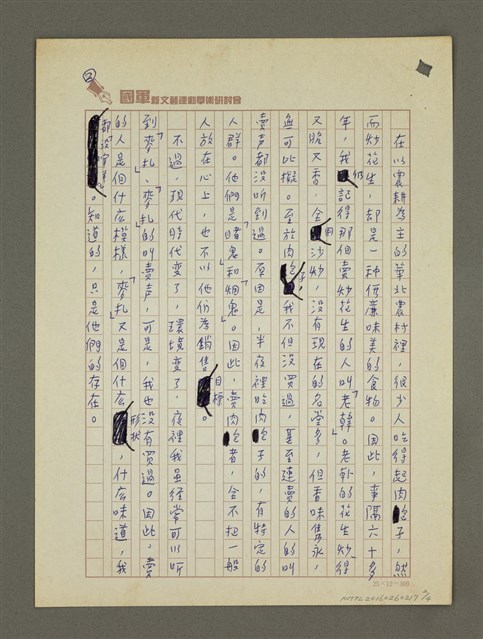 ②
國軍新文藝運動學術研討會
在以農耕為主的華北農村裡,很少人吃得起肉包子,然
而炒花生,却是一種価廉味美的食物。因此,事隔六十多
年,我仍記得那個賣炒花生的人叫「老韓」。老韓的花生炒得
又脆又香,全用沙炒,沒有現在的名堂多,但香味雋永,
無可比擬。至於肉包子,我不但沒買過,甚至連賣的人的叫
賣声都沒听到過。原因是,半夜裡吃肉包子的,有特定的
人群。他們是「賭鬼」和「烟鬼」。因此,賣肉包者,会不把一般
人放在心上,也不以他们為銷售目標。
不過,現代時代变了,環境变了,夜裡我虽経常可以听
到「麥扎、麥扎」的叫賣声,可是,我也沒有買過。因此,賣
的人是個什么模樣,「麥扎」又是個什么形狀,什么味道,我
都沒。知道的,只是他們的存在。
25×12=300
NMTL20160260217 2/4